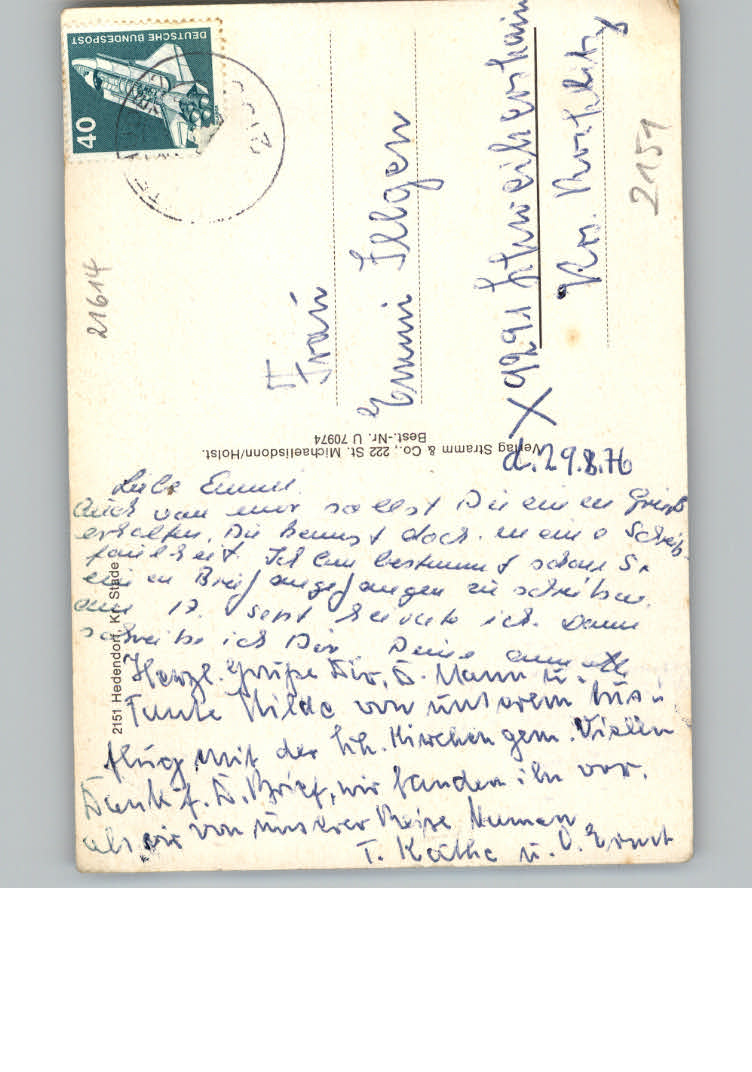 DEUTSCHE BUNDESPOST
40
21614
2151
Frau
Emmi Illgen
X 9291 Schweikershain
Krs. Rochlitz
Verlag Stramm & Co., 222 St. Michaelisdonn/Holst.
Best.-Nr. U 70974
2151 Hedendorf, Kr. Stade
d. 29.8.76
Liebe Emmi.
Auch von mir sollst Du einen Gruß
erhalten. Du kennst doch meine Schreib-
faulheit. Ich habe bestimmt schon
einen Brief angefangen zu schreiben.
am 17. Sept heirate ich. Dann
schreibe ich Dir. Deine
Herzl. Grüße Dir, D. Mann u.
Tante Hilde von unserem Aus-
flug mit der Kirchengem. Vielen
Dank f. D. Brief, wir fanden ihn vor.
als wir von unserer Reise kamen
T. Käthe u. O. Ernst